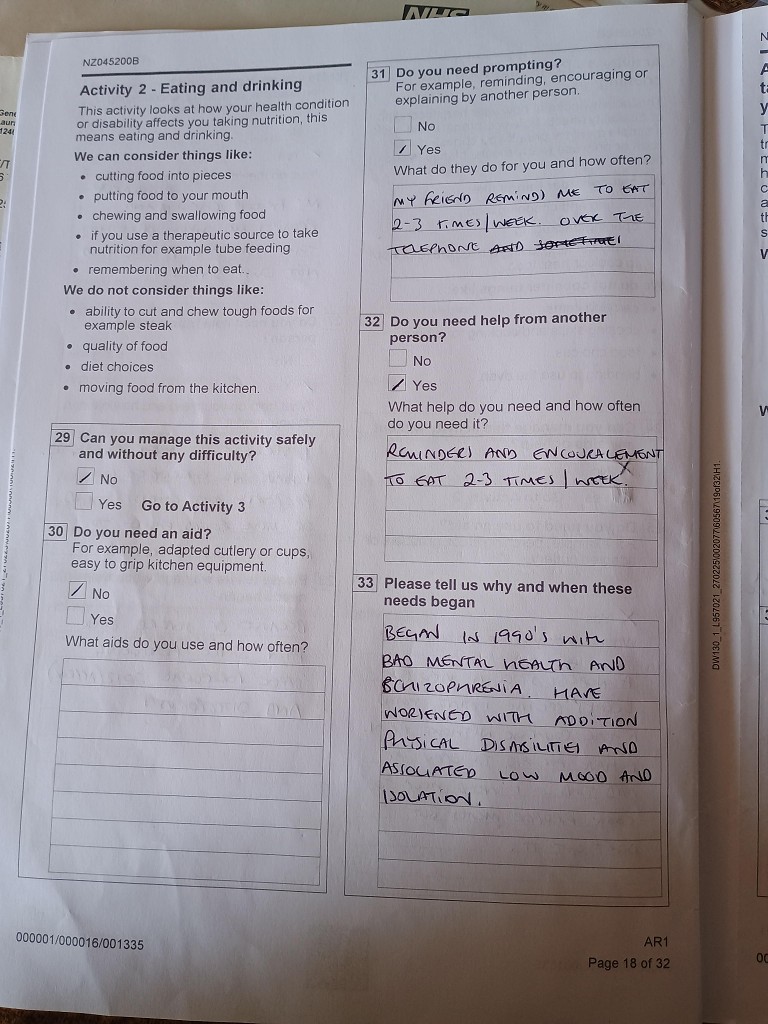 NHS
NZ045200B
Activity 2 - Eating and drinking
This activity looks at how your health condition
or disability affects you taking nutrition, this
means eating and drinking.
We can consider things like:
• cutting food into pieces
• putting food to your mouth
• chewing and swallowing food
• if you use a therapeutic source to take
nutrition for example tube feeding
• remembering when to eat.
We do not consider things like:
• ability to cut and chew tough foods for
example steak
• quality of food
• diet choices
• moving food from the kitchen.
29 Can you manage this activity safely
and without any difficulty?
No
Yes Go to Activity 3
30 Do you need an aid?
For example, adapted cutlery or cups,
easy to grip kitchen equipment.
No
Yes
What aids do you use and how often?
31 Do you need prompting?
For example, reminding, encouraging or
explaining by another person.
No
Yes
What do they do for you and how often?
MY FRIEND REMINDS ME TO EAT
2-3 TIMES/WEEK. OVER THE
TELEPHONE AND SOMETIMES
32 Do you need help from another
person?
No
Yes
What help do you need and how often
do you need it?
REMINDERS AND ENCOURAGEMENT
TO EAT 2-3 TIMES/WEEK.
33 Please tell us why and when these
needs began
BEGAN IN 1990's WITH
BAD MENTAL HEALTH AND
SCHIZOPHRENIA. HAVE
WORSENED WITH ADDITION
PHYSICAL DISABILITIES AND
ASSOCIATED LOW MOOD AND
ISOLATION.
000001/000016/001335
AR1
Page 18 of 32